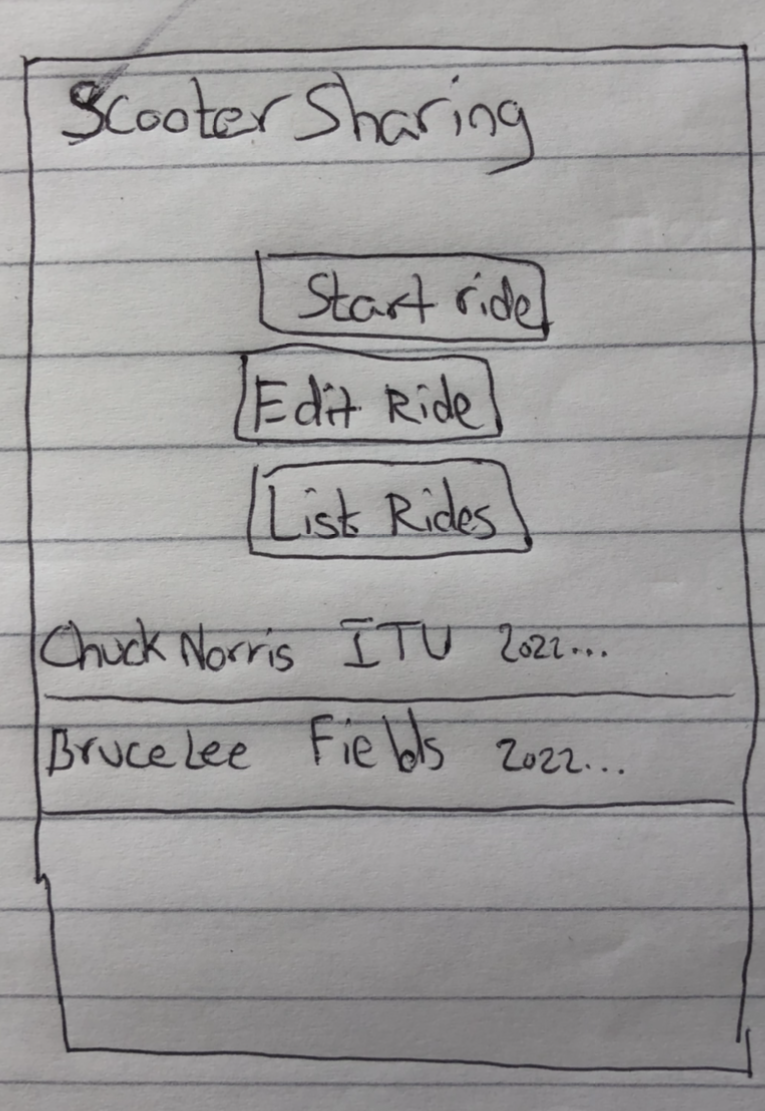 Scooter Sharing
Start ride
Edit Ride
List Rides
Chuck Norris ITU 2022...
Bruce Lee Fields 2022...